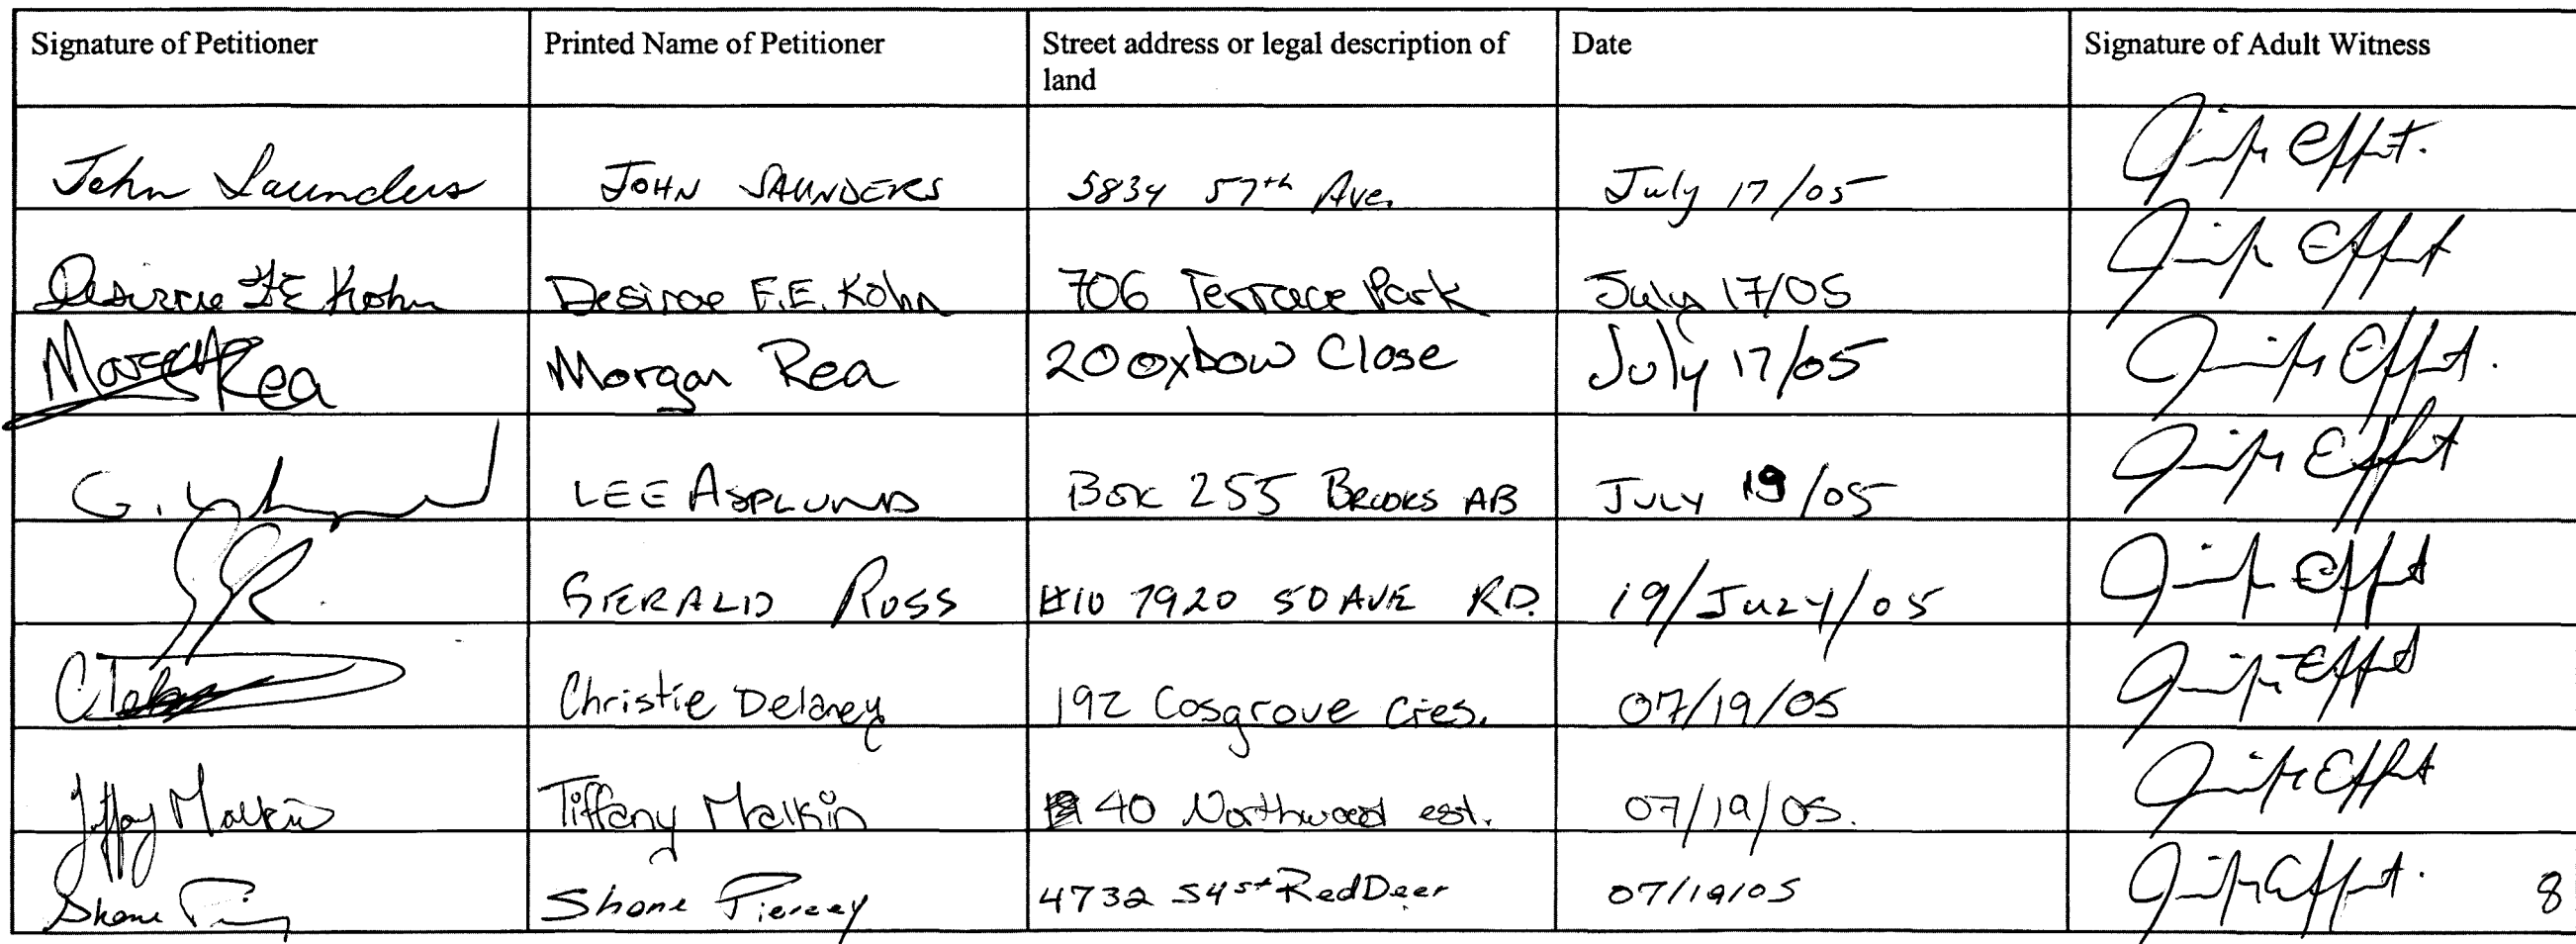 Signature of Petitioner Printed Name of Petitioner Street address or legal description of land Date Signature of Adult Witness
John Saunders JOHN SAUNDERS 5834 57th Ave. July 17/05
Desiree FE Kohn Desiree F.E. Kohn 706 Terrace Park July 17/05
Morgan Rea Morgan Rea 20 oxbow Close July 17/05
LEE ASPLUND Box 255 BROOKS AB JULY 19/05
GERALD ROSS #10 7920 50 AVE RD. 19/JULY/05
Christie Delaney 192 Cosgrove Cres. 07/19/05
Tiffany Malkin Tiffany Malkin 40 Northwood est. 07/19/05.
Shane Piercey 4732 54st Red Deer 07/19/05
8